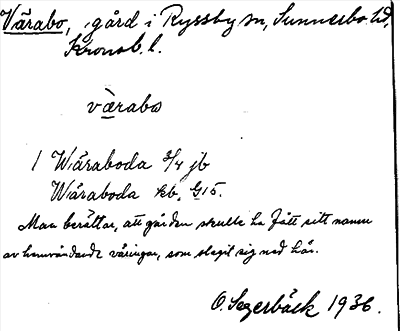 Värabo, gård i Ryssby sn, Sunnerbo hd,
Kronob. l.
värabo
1 Wäraboda 3/4 jb
Wäraboda kb, G15.
Man berättar, att gården skulle ha fått sitt namn
av hemvändande väringar, som slagit sig ned här.
O. Segerbäck 1936.